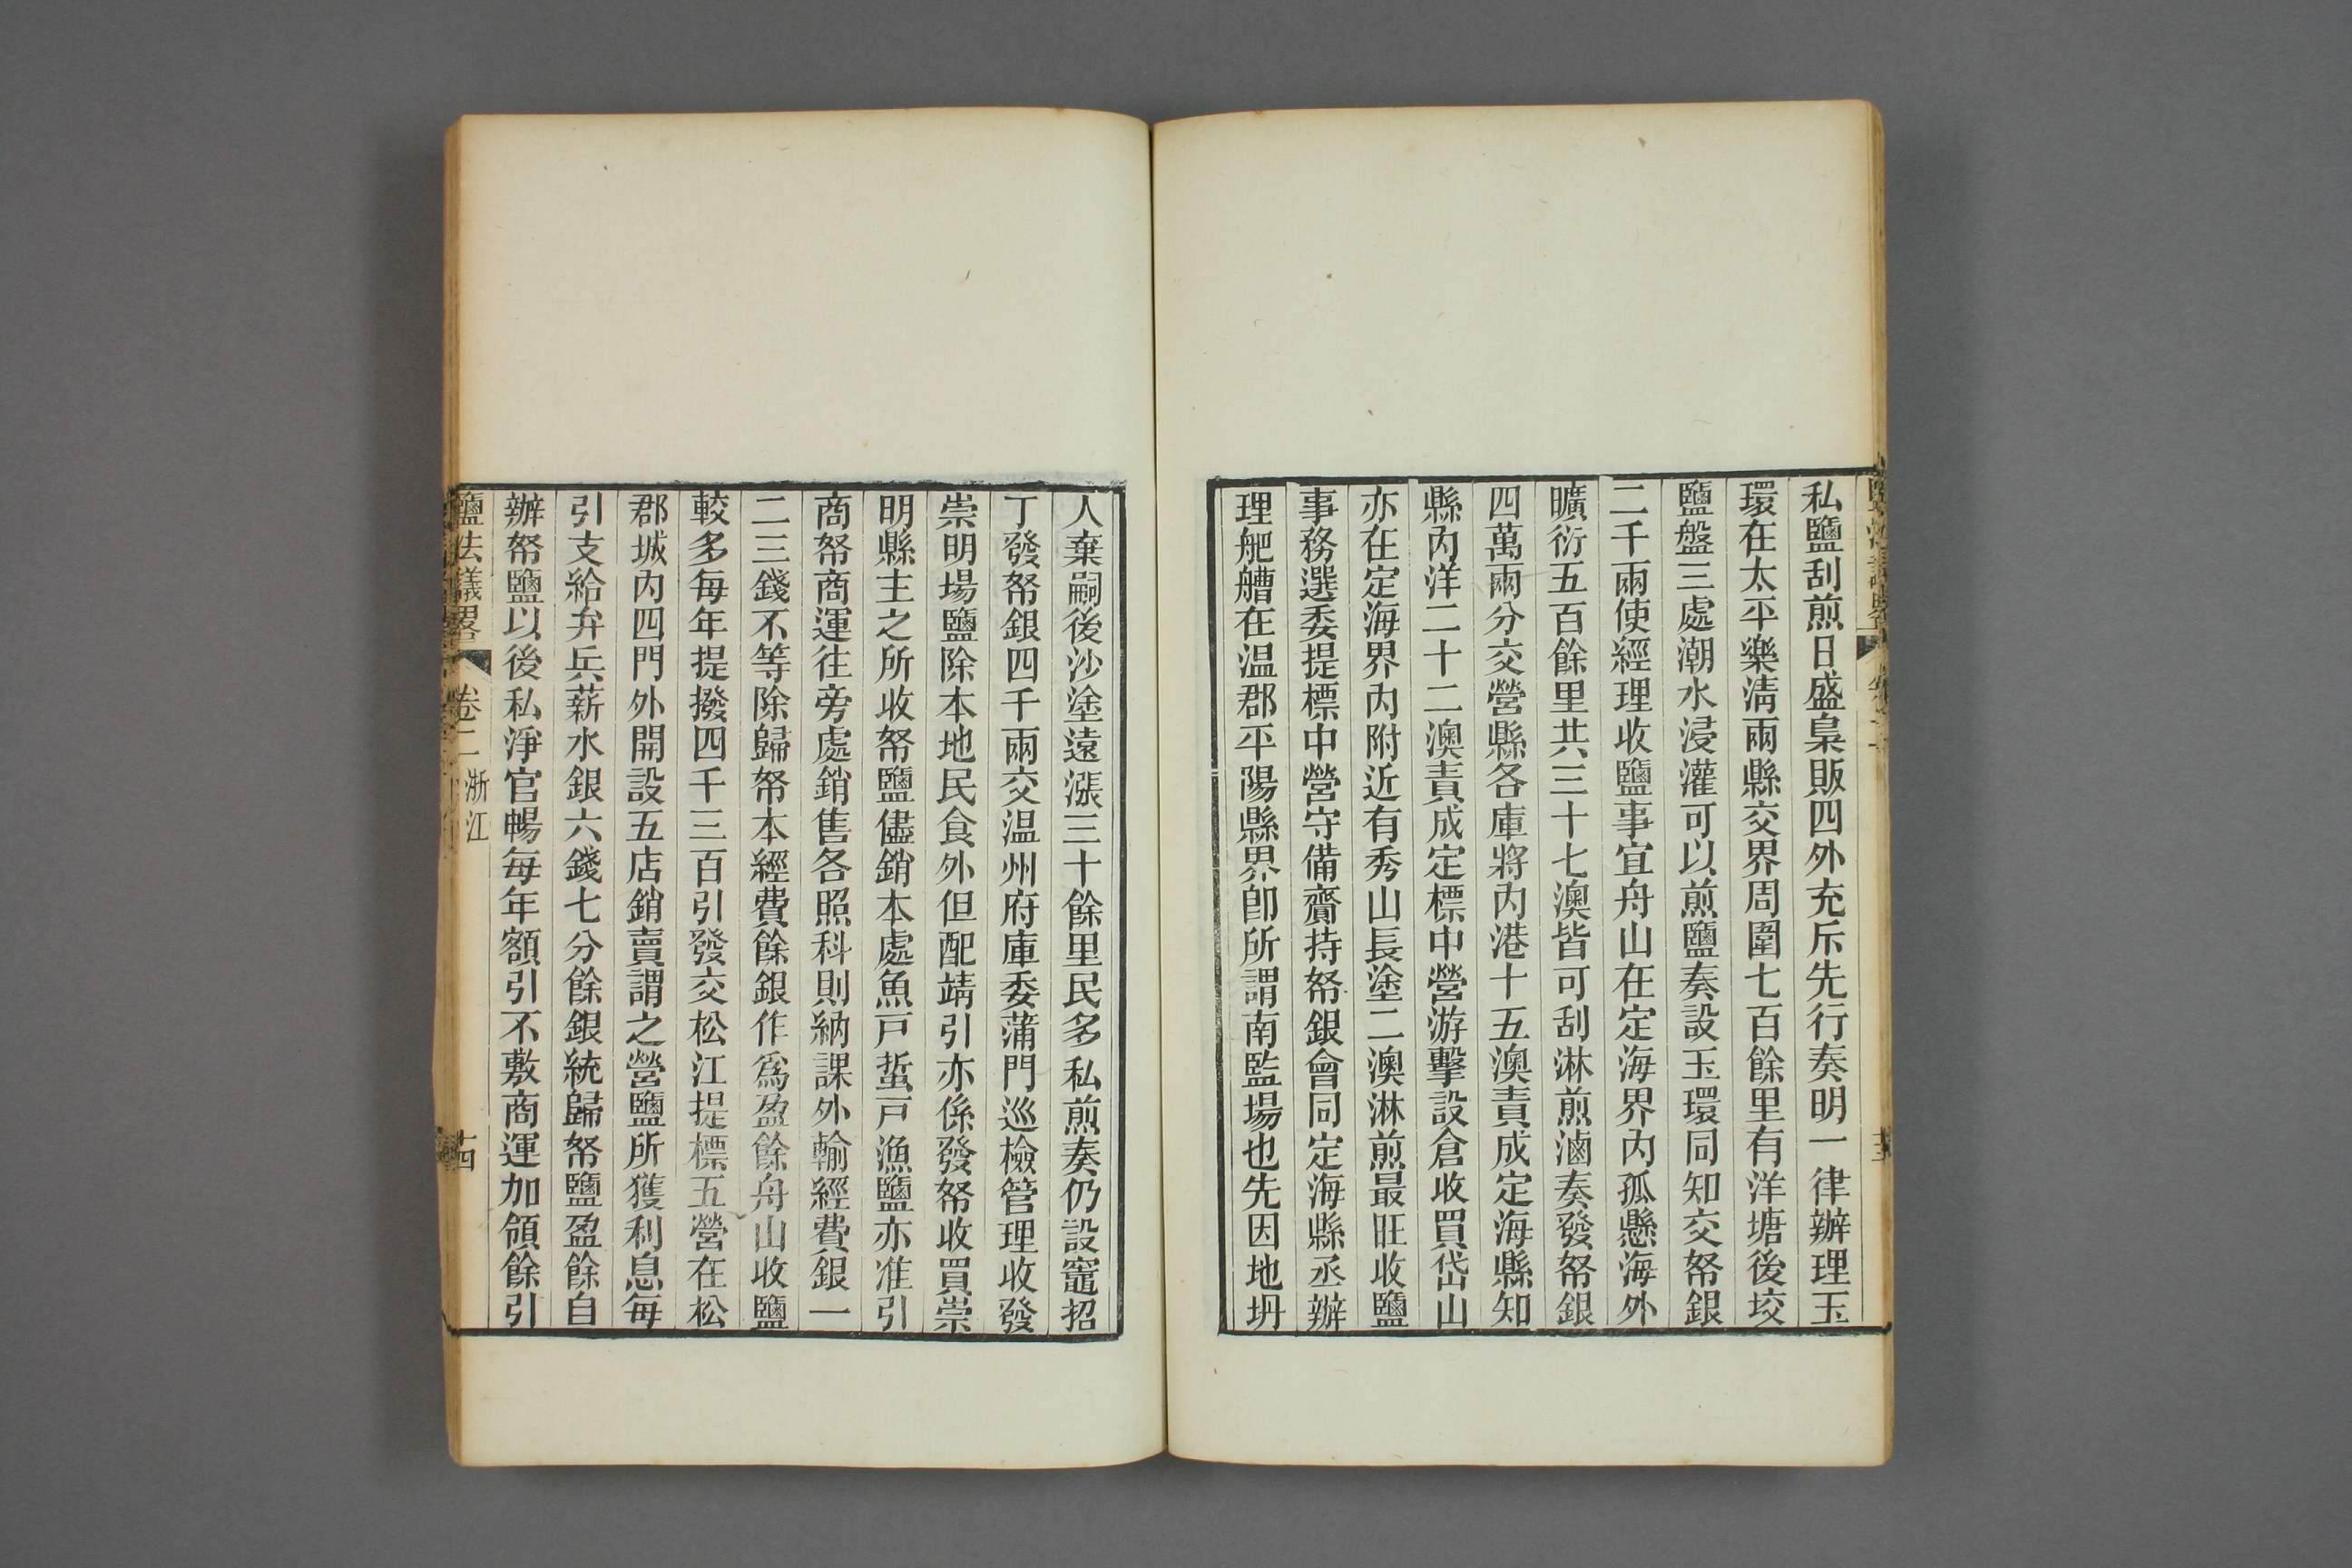 私鹽刮煎日盛梟販四外充斥先行奏明一律辦理玉
環在太平樂淸兩縣交界周圍七百餘里有洋塘後垵
鹽盤三處潮水浸灌可以煎鹽奏設玉環同知交帑銀
二千兩使經理收鹽事宜舟山在定海界內孤懸海外
曠衍五百餘里共三十七澳皆可刮淋煎滷奏發帑銀
四萬兩分交營縣各庫將內港十五澳責成定海縣知
縣內洋二十二澳責成定標中營游擊設倉收買岱山
亦在定海界內附近有秀山長塗二澳淋煎最旺收鹽
事務選委提標中營守備齎持帑銀會同定海縣丞辦
理舥艚在温郡平陽縣界卽所謂南監場也先因地坍
人棄嗣後沙塗遠漲三十餘里民多私煎奏仍設竈招
丁發帑銀四千兩交温州府庫委蒲門巡檢管理收發
崇明場鹽除本地民食外但配靖引亦係發帑收買崇
明縣主之所收帑鹽儘銷本處魚戸蜇戸漁鹽亦准引
商帑商運往旁處銷售各照科則納課外輸經費銀一
二三錢不等除歸帑本經費餘銀作爲盈餘舟山收鹽
較多每年提撥四千三百引發交松江提標五營在松
郡城內四門外開設五店銷賣謂之營鹽所獲利息每
引支給弁兵薪水銀六錢七分餘銀統歸帑鹽盈餘自
辦帑鹽以後私淨官暢每年額引不敷商運加領餘引
鹽法議畧
卷二 浙江
十四